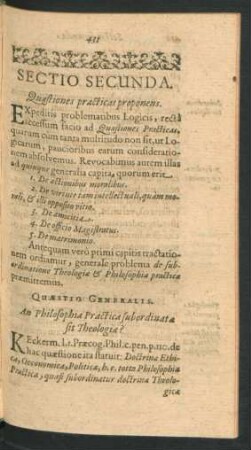 411
SECTIO SECUNDA.
Quæstiones practicas proponens.
EXpositis problematibus Logicis, rectà
accessum facio ad Quæstiones Practicas,
quarum cum tanta multitudo non sit, ut Lo-
gicarum, paucioribus earum consideratio-
nem absolvemus. Revocabimus autem illas
ad quinque generalia capita, quorum erit
1. De actionibus moralibus.
2. De virtute tam intellectuali, quàm mo-
rali, & illi opposito vitio.
3. De amicitia.
4. De officio Magistratus.
5. De matrimonio.
Antequam verò primi capitis tractatio-
nem ordiamur, generale problema de sub-
ordinatione Theologiæ & Philosophiæ practicæ
præmittemus.
QUÆSTIO GENERALIS.
An Philosophia Practica subordinata
sit Theologiæ?
KEckerm. l.1. Præcog. Phil. c. pen. p. de
hac quæstione ita statuit: Doctrina Ethi-
ca, Oeconomica, Politica, h.e. tota Philosophia
Practica, quasi subordinatur doctrinæ Theolo-
gicæ